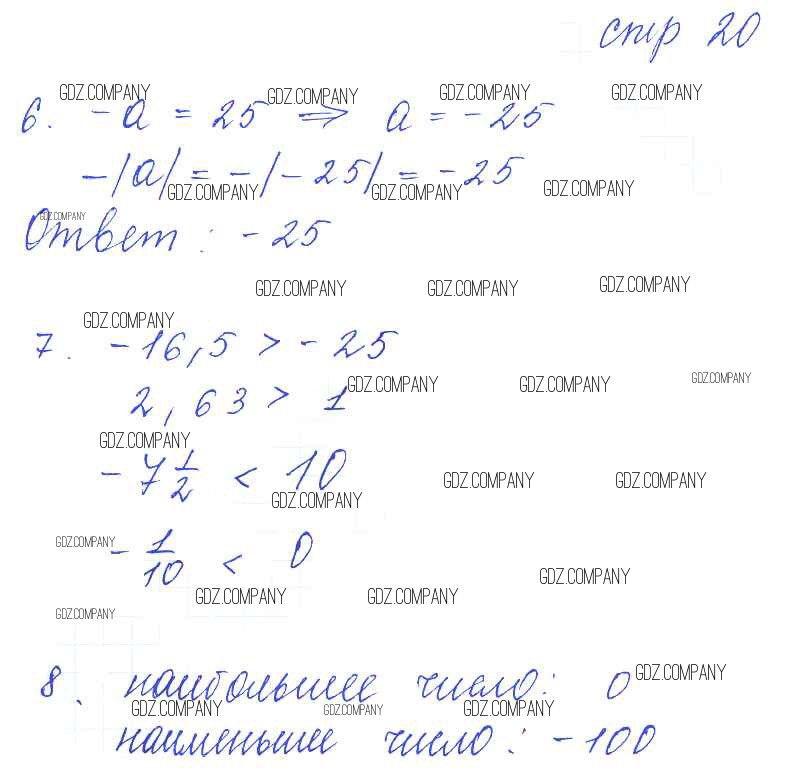 стр 20
GDZ.COMPANY GDZ.COMPANY GDZ.COMPANY GDZ.COMPANY
6. -a = 25 ⇒ a = -25
-|a| = -|-25| = -25
GDZ.COMPANY GDZ.COMPANY GDZ.COMPANY
GDZ.COMPANY
Ответ: -25
GDZ.COMPANY GDZ.COMPANY GDZ.COMPANY
GDZ.COMPANY
7. -16,5 > -25
GDZ.COMPANY GDZ.COMPANY GDZ.COMPANY
2,63 > 1
GDZ.COMPANY
-7 1/2 < 10
GDZ.COMPANY GDZ.COMPANY GDZ.COMPANY
GDZ.COMPANY
-1/10 < 0
GDZ.COMPANY
GDZ.COMPANY GDZ.COMPANY
GDZ.COMPANY
8. наибольшее число: 0
GDZ.COMPANY
GDZ.COMPANY GDZ.COMPANY GDZ.COMPANY
наименьшее число: -100